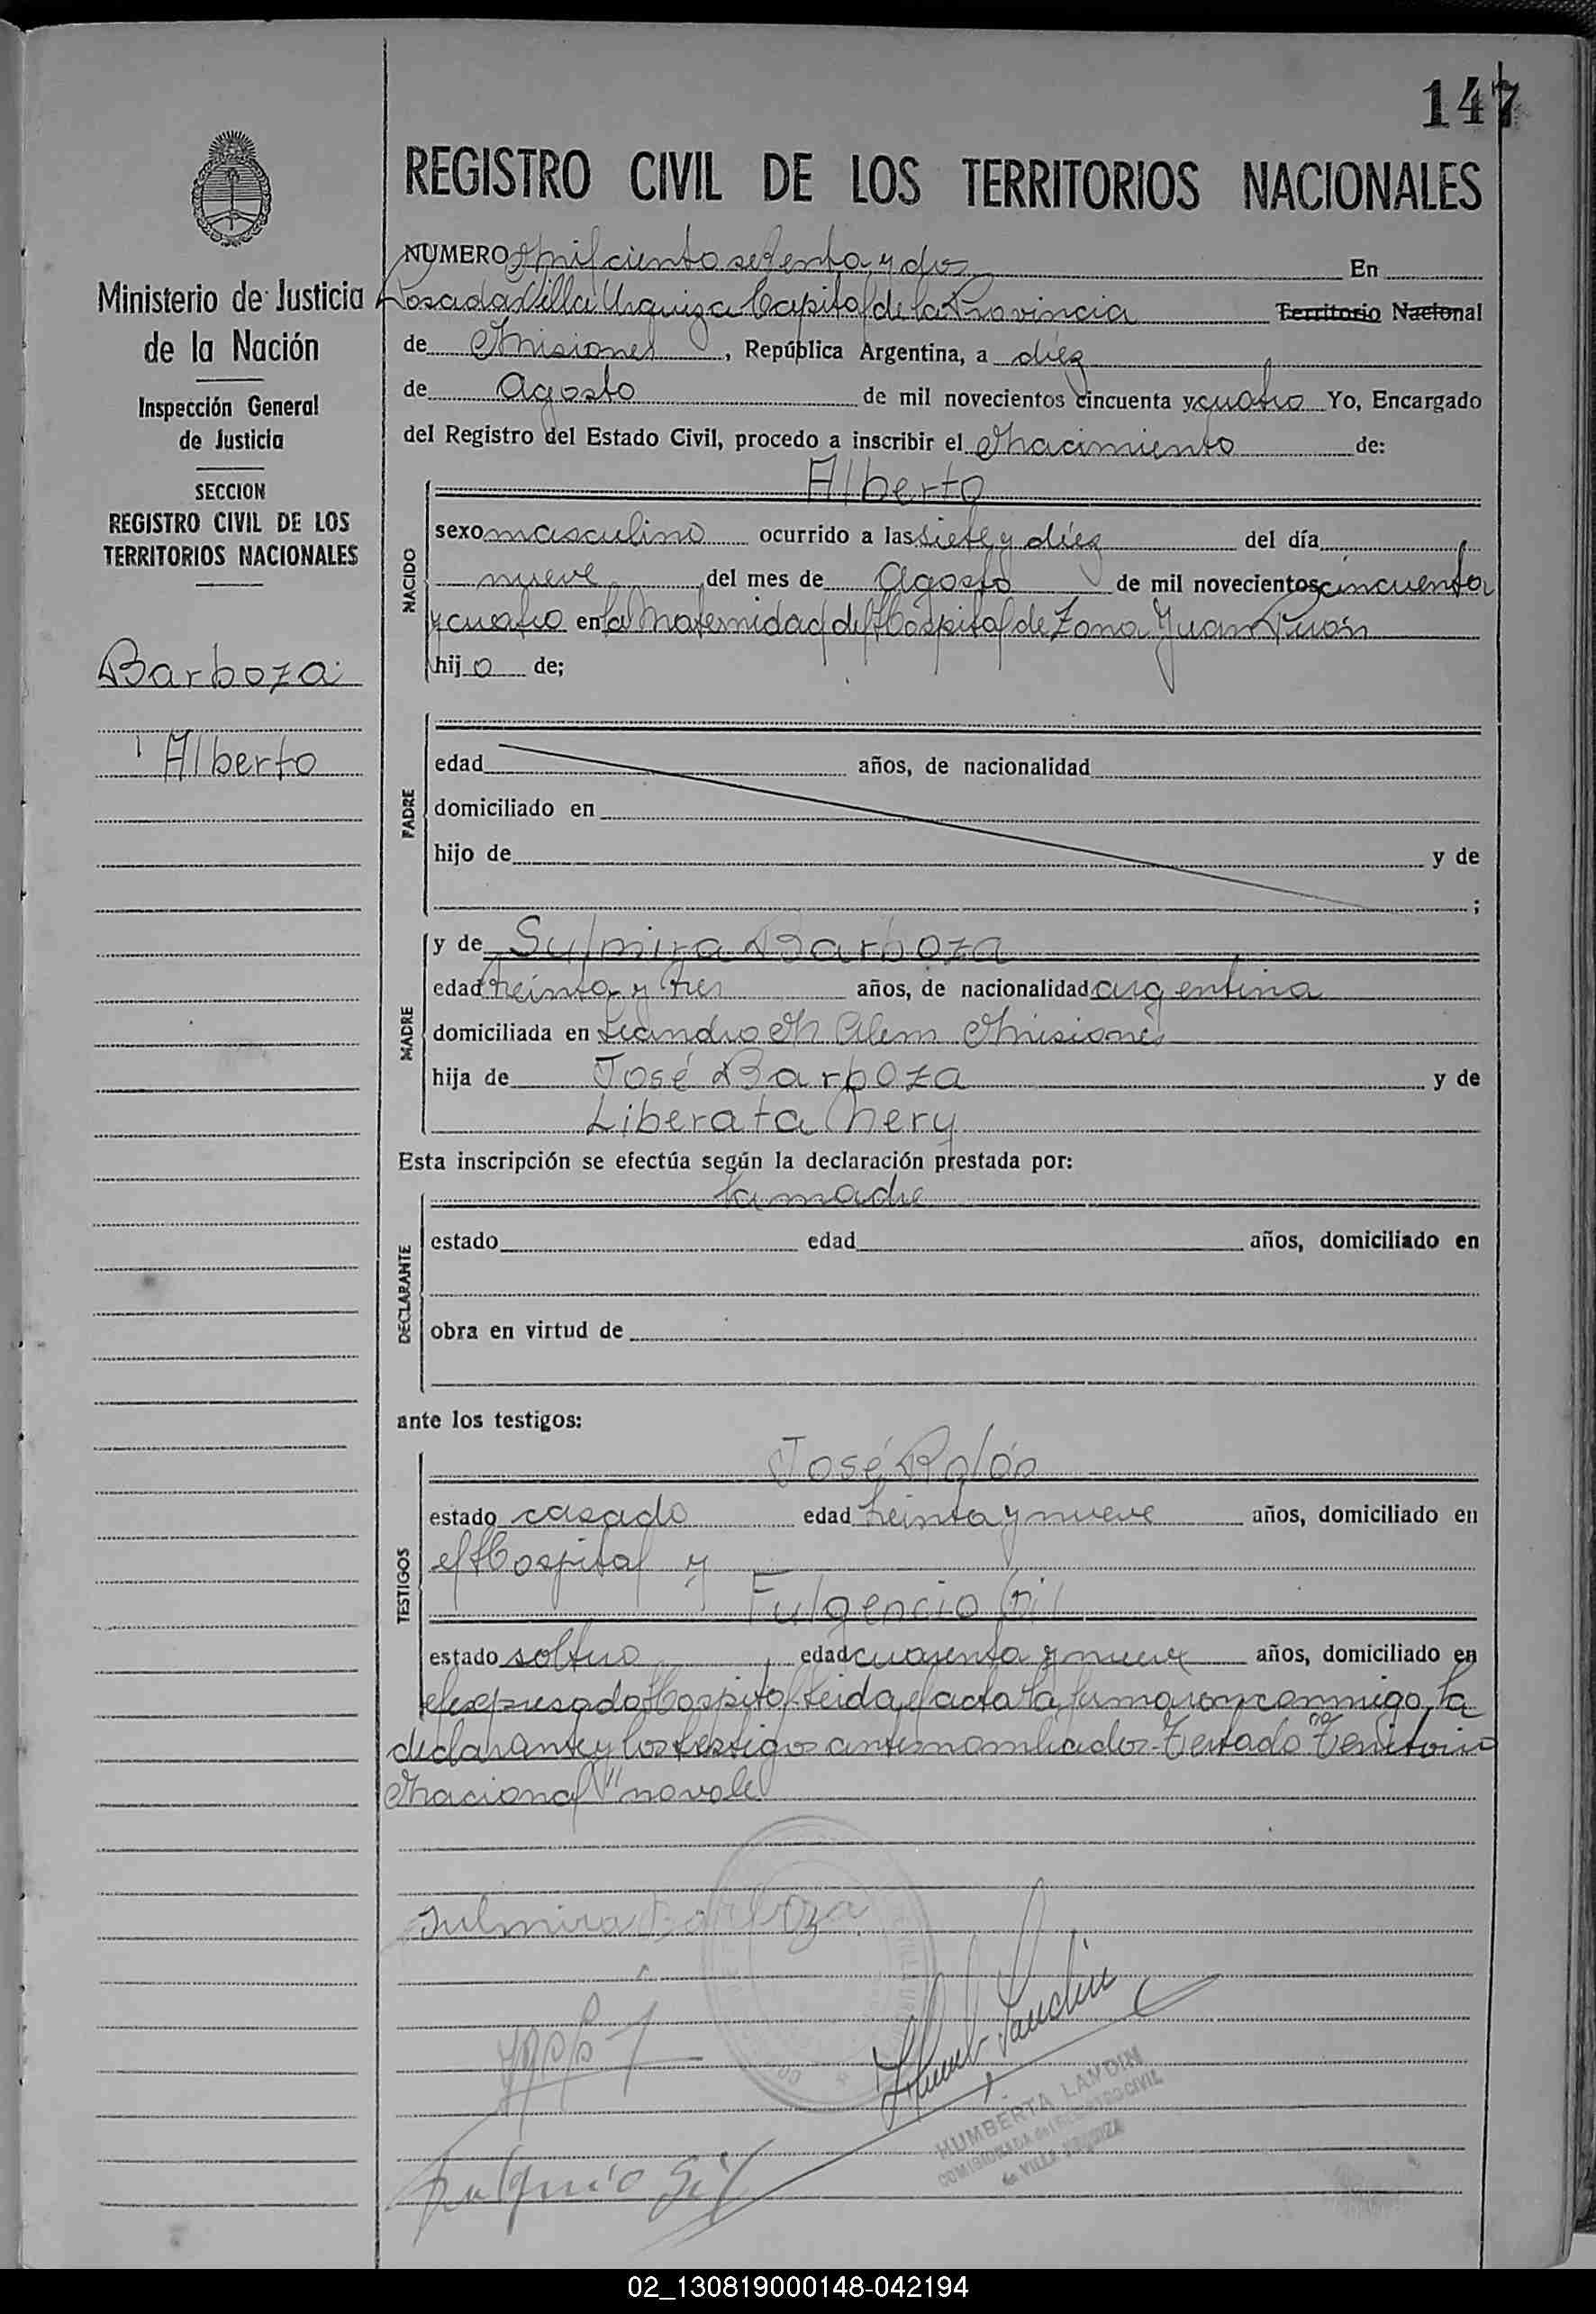 147
REGISTRO CIVIL DE LOS TERRITORIOS NACIONALES
NUMERO mil ciento setenta y dos En
Posadas Villa Urquiza Capital de la Provincia Territorio Nacional
de Misiones, República Argentina, a diez
de Agosto de mil novecientos cincuenta y cuatro Yo, Encargado
del Registro del Estado Civil, procedo a inscribir el Nacimiento de:
Ministerio de Justicia
de la Nación
Inspección General
de Justicia
SECCION
REGISTRO CIVIL DE LOS
TERRITORIOS NACIONALES
Barboza
Alberto
NACIDO
Alberto
sexo masculino ocurrido a las siete y diez del día
nueve del mes de Agosto de mil novecientos cincuenta
y cuatro en la Maternidad del Hospital de Zona Juan Perón
hijo de;
PADRE
edad años, de nacionalidad
domiciliado en
hijo de y de
;
MADRE
y de Sulmira Barboza
edad treinta y tres años, de nacionalidad argentina
domiciliada en Leandro N Alem Misiones
hija de José Barboza y de
Liberata Nery
Esta inscripción se efectúa según la declaración prestada por:
DECLARANTE
la madre
estado edad años, domiciliado en
obra en virtud de
ante los testigos:
TESTIGOS
José Rolón
estado casado edad treinta y nueve años, domiciliado en
el Hospital y
Fulgencio Gil
estado soltero edad cuarenta y nueve años, domiciliado en
el expresado Hospital. Leida el acta la firmaron conmigo, la
declarante y los testigos antes nombrados. Testado "Territorio
Nacional" no vale
Sulmira Barboza
HUMBERTA LANDIN
COMISIONADA del REGISTRO CIVIL
de VILLA URQUIZA
Fulgencio Gil
02_130819000148-042194